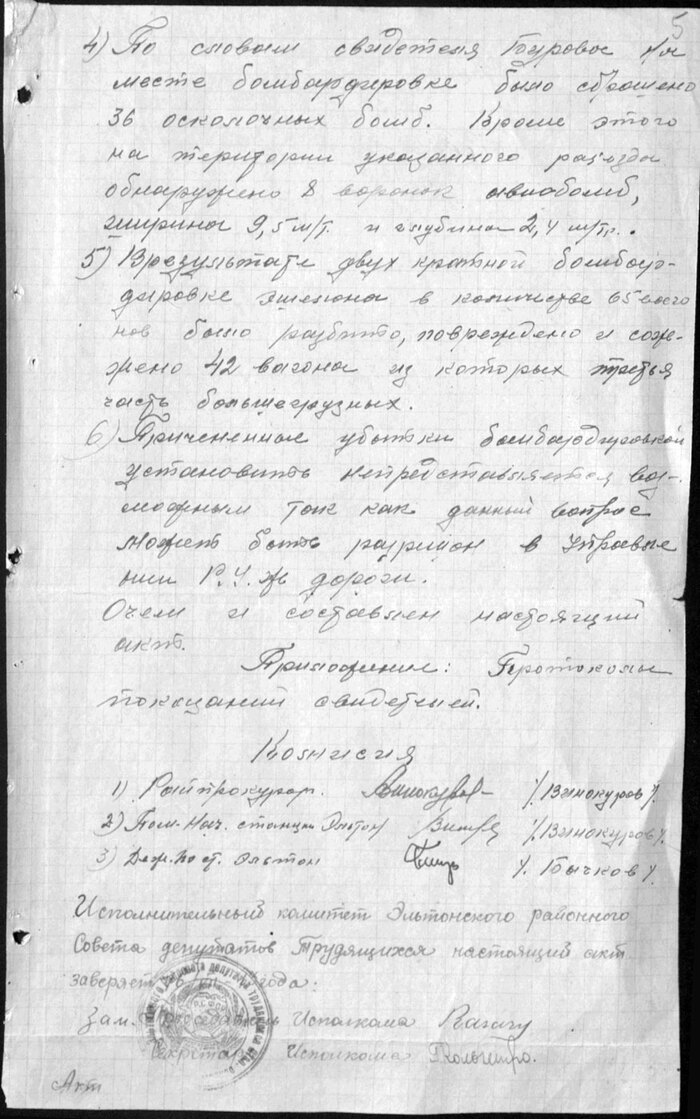 5
4) По словам свидетеля Бурова на
месте бомбардировке было сброшено
36 осколочных бомб. Кроме этого
на територии указанного разъезда
обнаружено 8 воронок авиабомб,
ширина 9,5 м/т. и глубина 2,4 м/т.
5) Врезультате двух кратной бомбар-
дировке эшелона в количестве 65 ваго
нов было разбито, повреждено и сож-
жено 42 вагона из которых третья
часть большегрузных.
6) Причененные убытки бомбардировкой
установить непредставляется воз-
можным так как данный вопрос
может быть разрешон в Управле
нии Р.У. ж дороги.
Очем и составлен настоящий
акт.
Приложение: Протоколы
показаний свидетелей.
Комисия
1) Райпрокурор. /Винокуров/.
2) Пом. Нач. станции Эльтон /Винокуров/
3) Деж. по ст. Эльтон /. Бычков/.
Исполнительный комитет Эльтонского районного
Совета депутатов Трудящихся настоящий акт
заверяет года:
Зам. Председатель Исполкома
Секретарь Исполкома
Акт